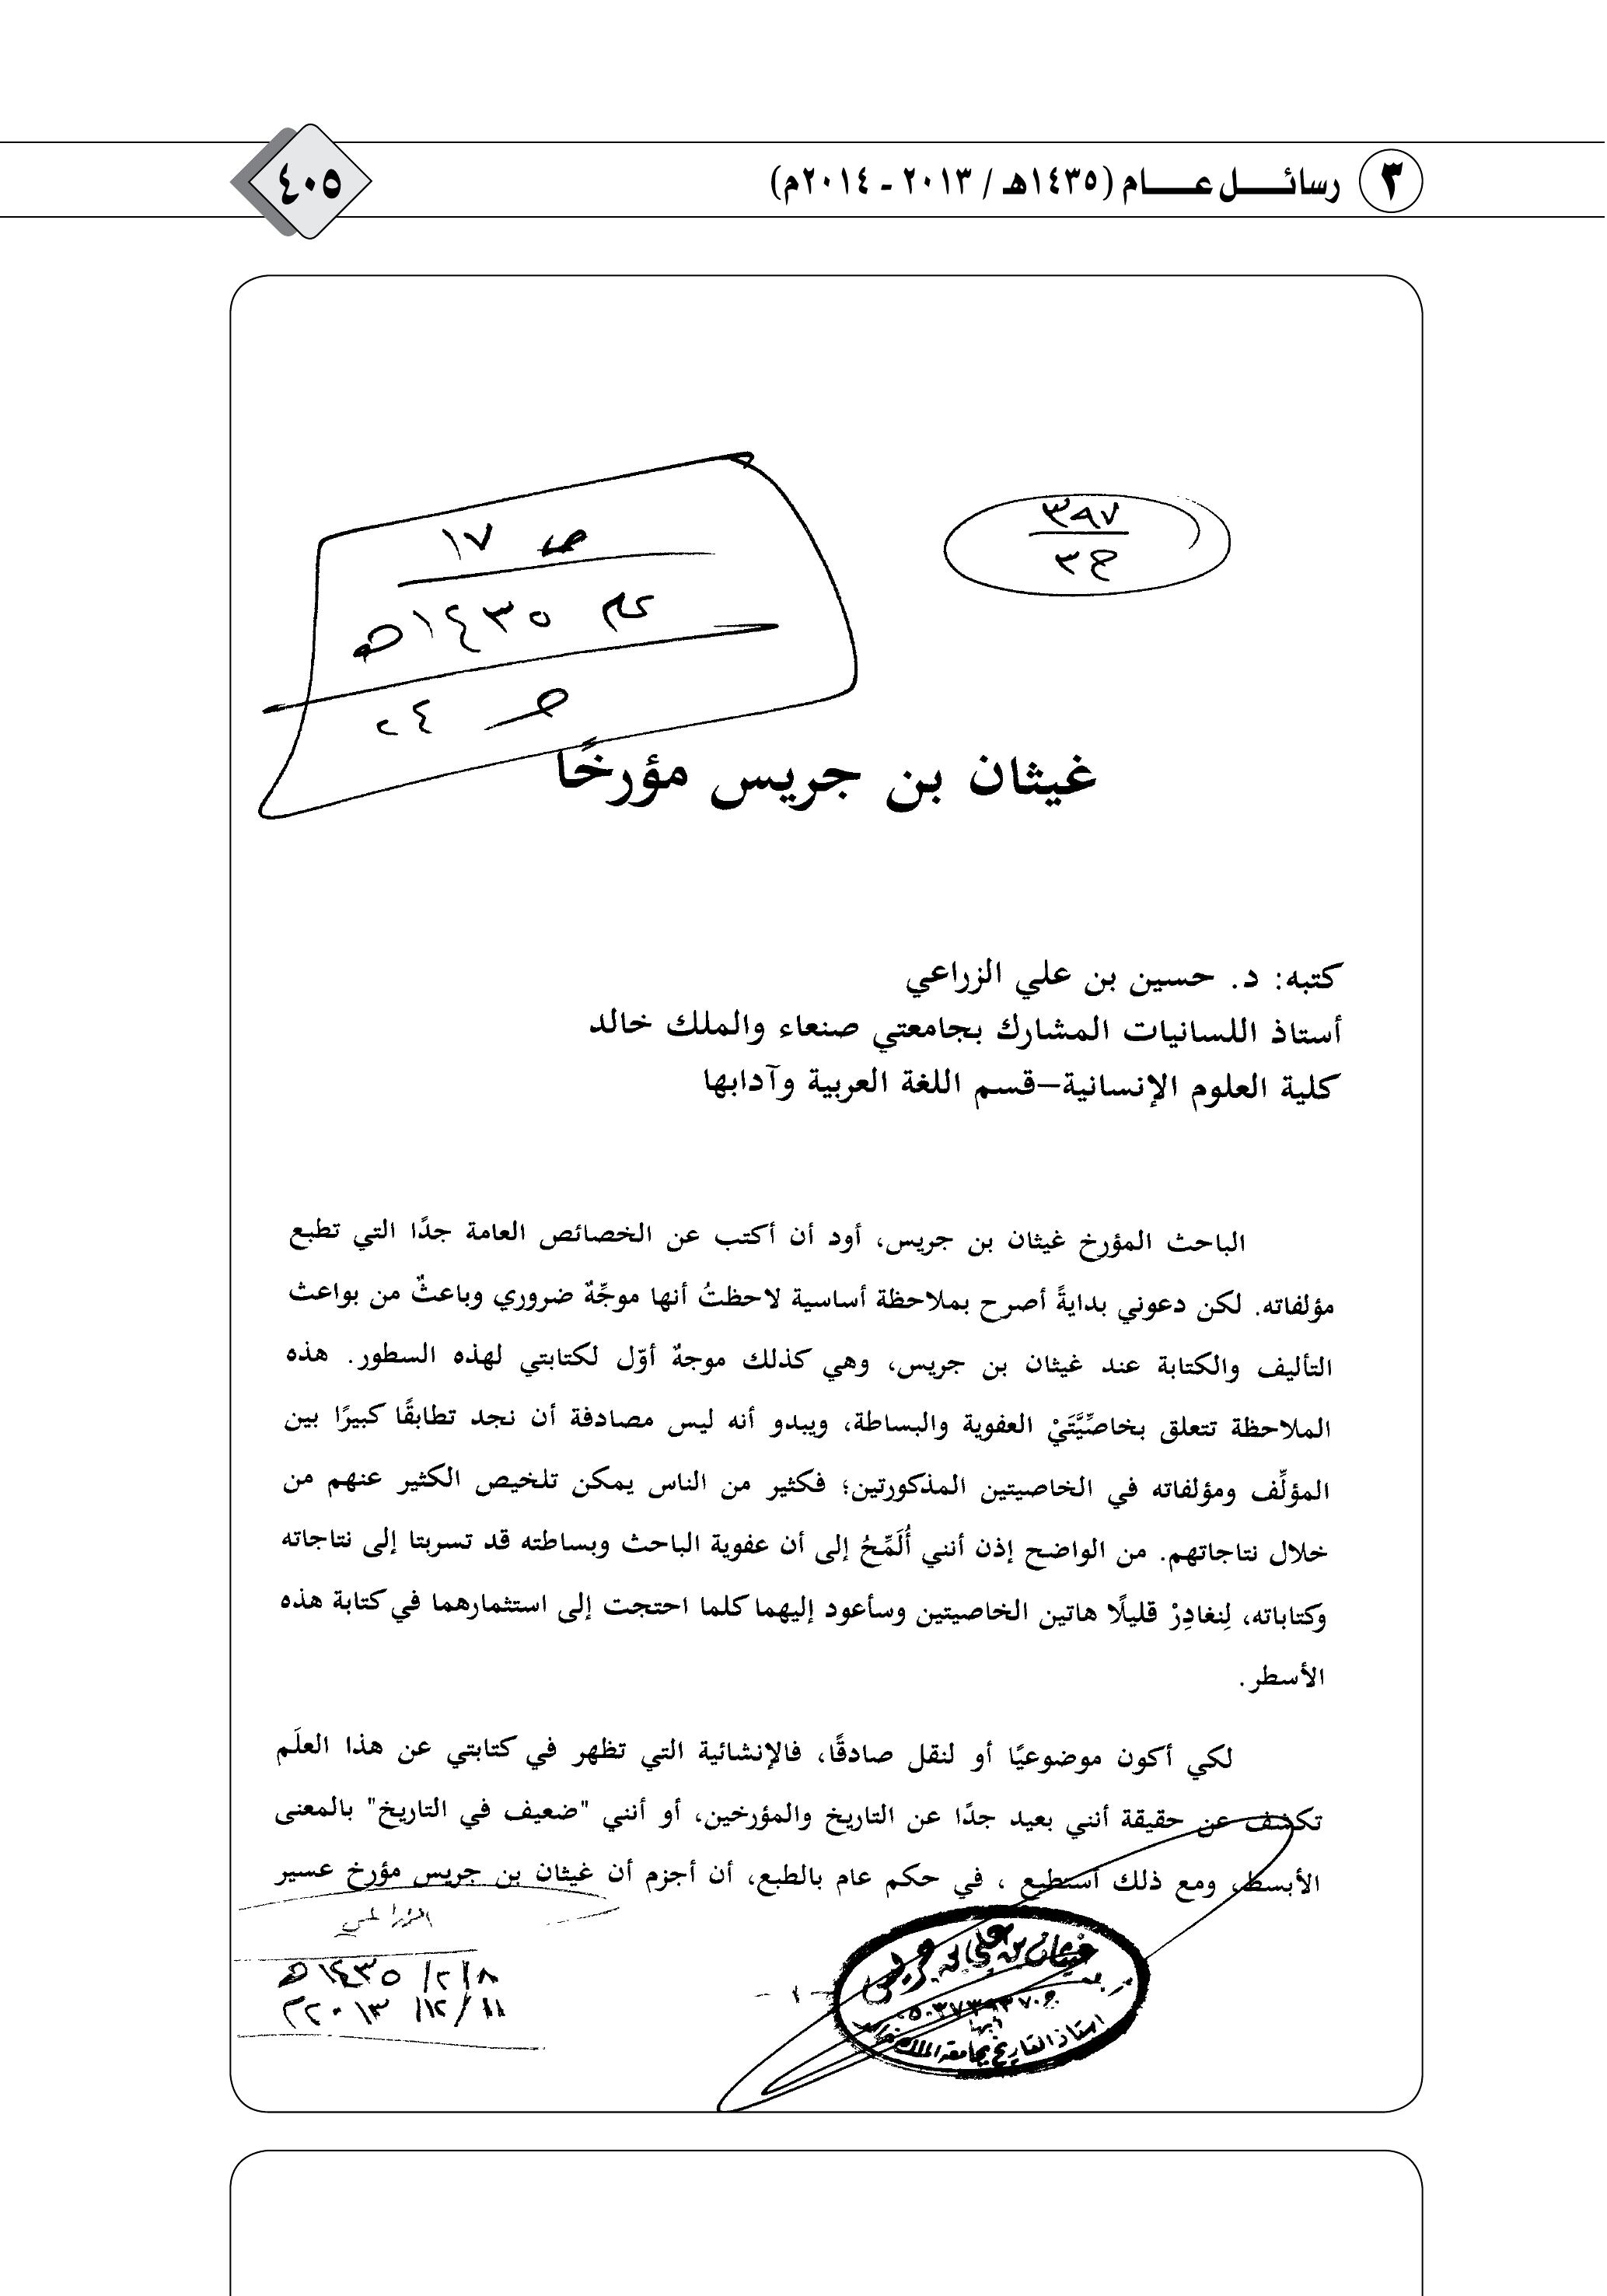 ٣ رسائل عام (١٤٣٥هـ / ٢٠١٣ - ٢٠١٤م)
٤٠٥
٣٩٧
ج ٣
ص ١٧
عام ١٤٣٥هـ
غيثان بن جريس مؤرخًا
كتبه: د. حسين بن علي الزراعي
أستاذ اللسانيات المشارك بجامعتي صنعاء والملك خالد
كلية العلوم الإنسانية–قسم اللغة العربية وآدابها
الباحث المؤرخ غيثان بن جريس، أود أن أكتب عن الخصائص العامة جدًا التي تطبع
مؤلفاته. لكن دعوني بدايةً أصرح بملاحظة أساسية لاحظتُ أنها موجِّهةٌ ضروري وباعثٌ من بواعث
التأليف والكتابة عند غيثان بن جريس، وهي كذلك موجهٌ أوّل لكتابتي لهذه السطور. هذه
الملاحظة تتعلق بخاصِّيَّتَيْ العفوية والبساطة، ويبدو أنه ليس مصادفة أن نجد تطابقًا كبيرًا بين
المؤلِّف ومؤلفاته في الخاصيتين المذكورتين؛ فكثير من الناس يمكن تلخيص الكثير عنهم من
خلال نتاجاتهم. من الواضح إذن أنني أُلَمِّحُ إلى أن عفوية الباحث وبساطته قد تسربتا إلى نتاجاته
وكتاباته، لِنغادِرْ قليلًا هاتين الخاصيتين وسأعود إليهما كلما احتجت إلى استثمارهما في كتابة هذه
الأسطر.
لكي أكون موضوعيًا أو لنقل صادقًا، فالإنشائية التي تظهر في كتابتي عن هذا العلَم
تكشف عن حقيقة أنني بعيد جدًا عن التاريخ والمؤرخين، أو أنني "ضعيف في التاريخ" بالمعنى
الأبسط، ومع ذلك أستطيع ، في حكم عام بالطبع، أن أجزم أن غيثان بن جريس مؤرخ عسير
الزراعي
٨/٢/١٤٣٥هـ
١١/١٢/٢٠١٣م
- ١ -
غيثان بن علي بن جريس
أبها
أستاذ التاريخ بجامعة الملك خالد